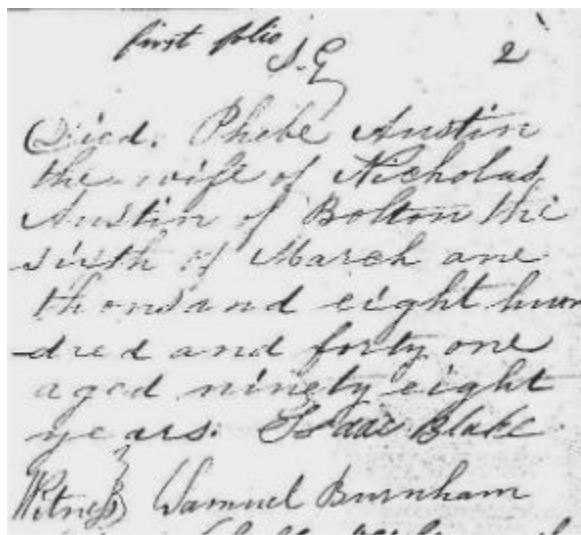 first folio S. G 2
Died. Phebe Austin
the wife of Nicholas
Austin of Bolton the
sixth of March one
thousand eight hun
-dred and forty one
aged ninety eight
years. Isaac Blake
Witness Samuel Burnham